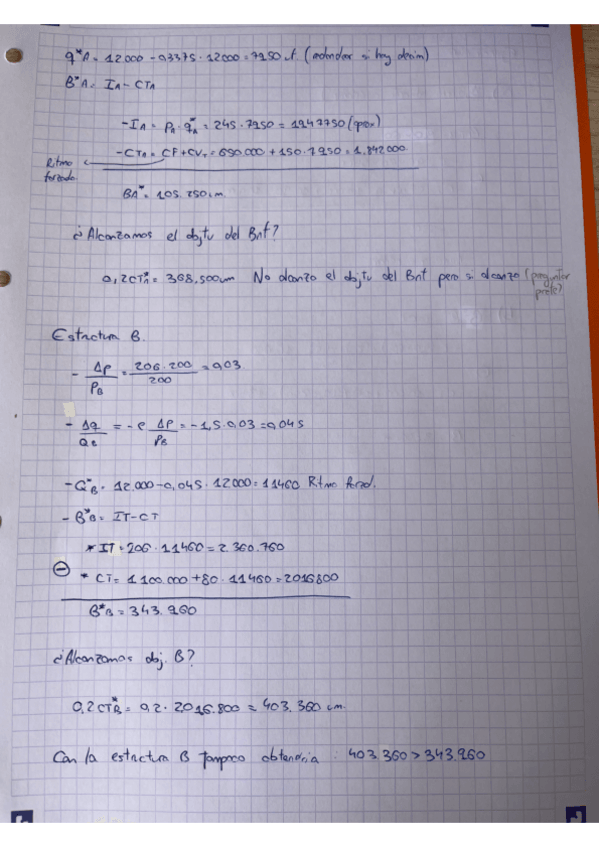 q*A = 12000 - 0,3375 · 12000 = 7950 ut (redondear si hay decim)
B*A = IA - CTA
- IA = PA · q*A = 245 · 7950 = 1947750 (pox)
- CTA = CF + CVT = 650.000 + 150 · 7950 = 1.842000
Ritmo
forzado
BA* = 105.750 um.
¿Alcanzamos el objtv del Bnf?
0,2CT*A = 368,500um No alcanzo el objtv del Bnf pero si alcanzo (preguntar
profe?
Estructura B.
- Δp/PB = 206-200/200 = 0,03
- Δq/Qe = -e Δp/PB = -1,5 · 0,03 = 0,045
- Q*B = 12.000 - 0,045 · 12000 = 11460 Ritmo forzd.
- B*B = IT - CT
* IT = 206 · 11460 = 2.360.760
⊖ * CT = 1100.000 + 80 · 11460 = 2016800
B*B = 343.960
¿Alcanzamos obj. B?
0,2CT*B = 0,2 · 2.016.800 = 403.360 um.
Con la estructura B tampoco obtendria : 403.360 > 343.960